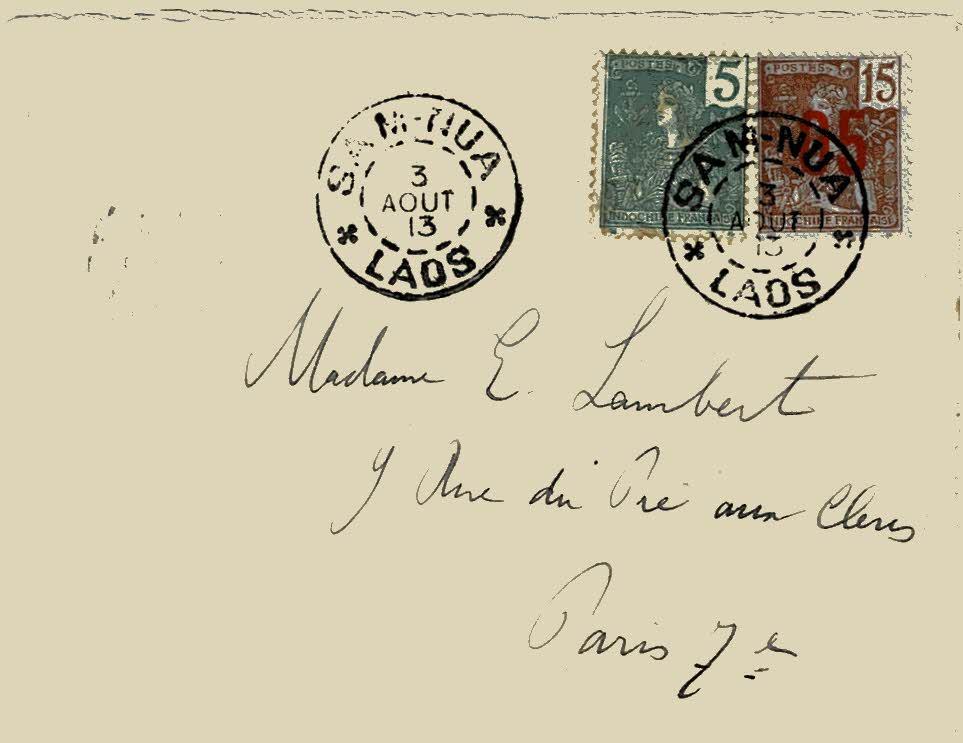 SAM-NUA
3
AOUT
13
LAOS
POSTES
5
INDOCHINE FRANÇAISE
POSTES
15
05
INDOCHINE FRANÇAISE
SAM-NUA
3
AOUT
13
LAOS
Madame E. Lambert
9 Rue du Pré aux Clercs
Paris 7e